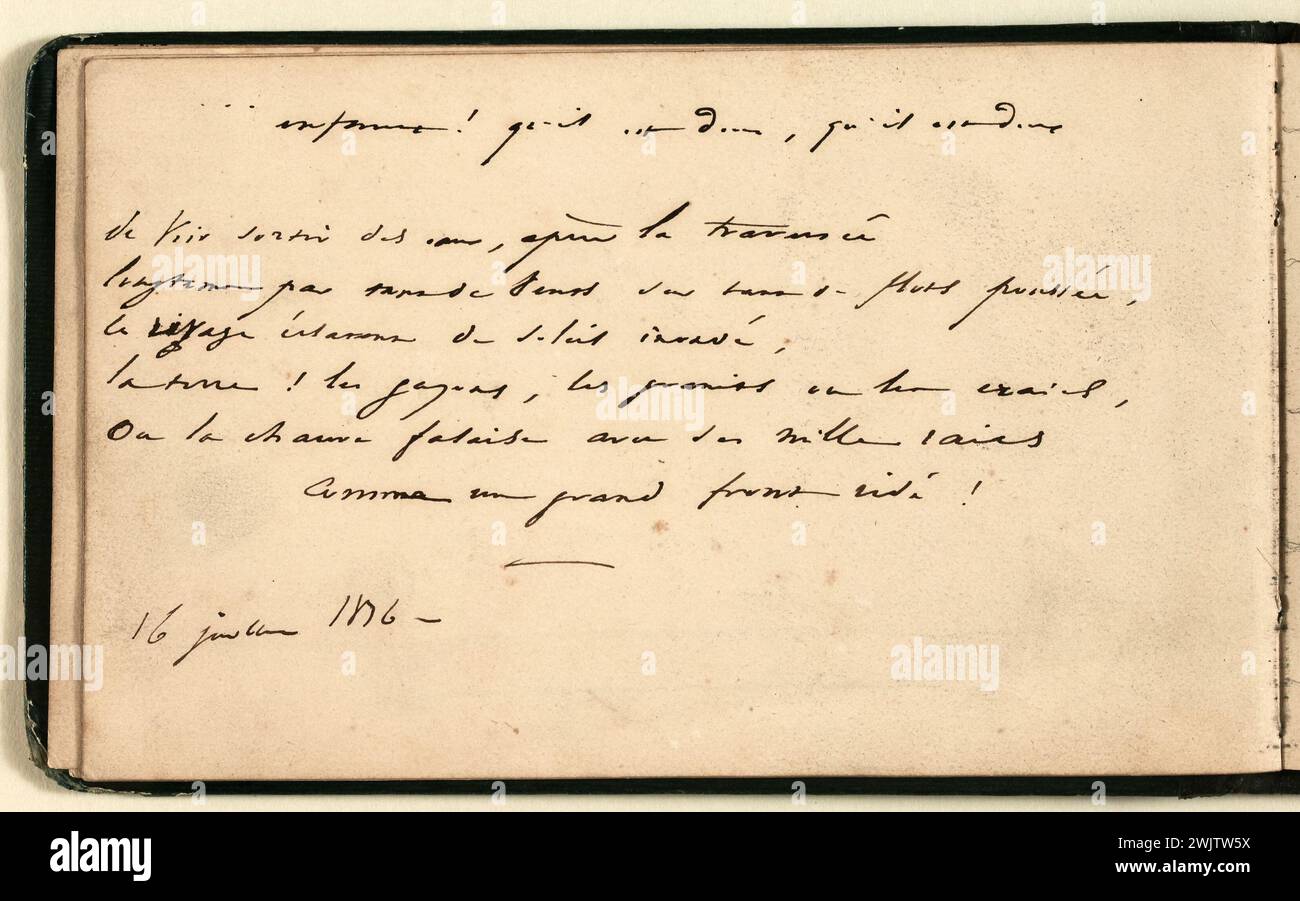 ... enfance ! qu'il est doux, qu'il est doux
de voir sortir des eaux, après la traversée
longtemps par tant de vents sur tant de flots poussée,
le rivage éclatant de soleil inondé,
la terre ! les gazons, les
Ou la chauve falaise avec ses mille raies
Comme un grand front ridé !
16 juillet 1836 -
alamy
Image ID: 2WJTW5X
www.alamy.com